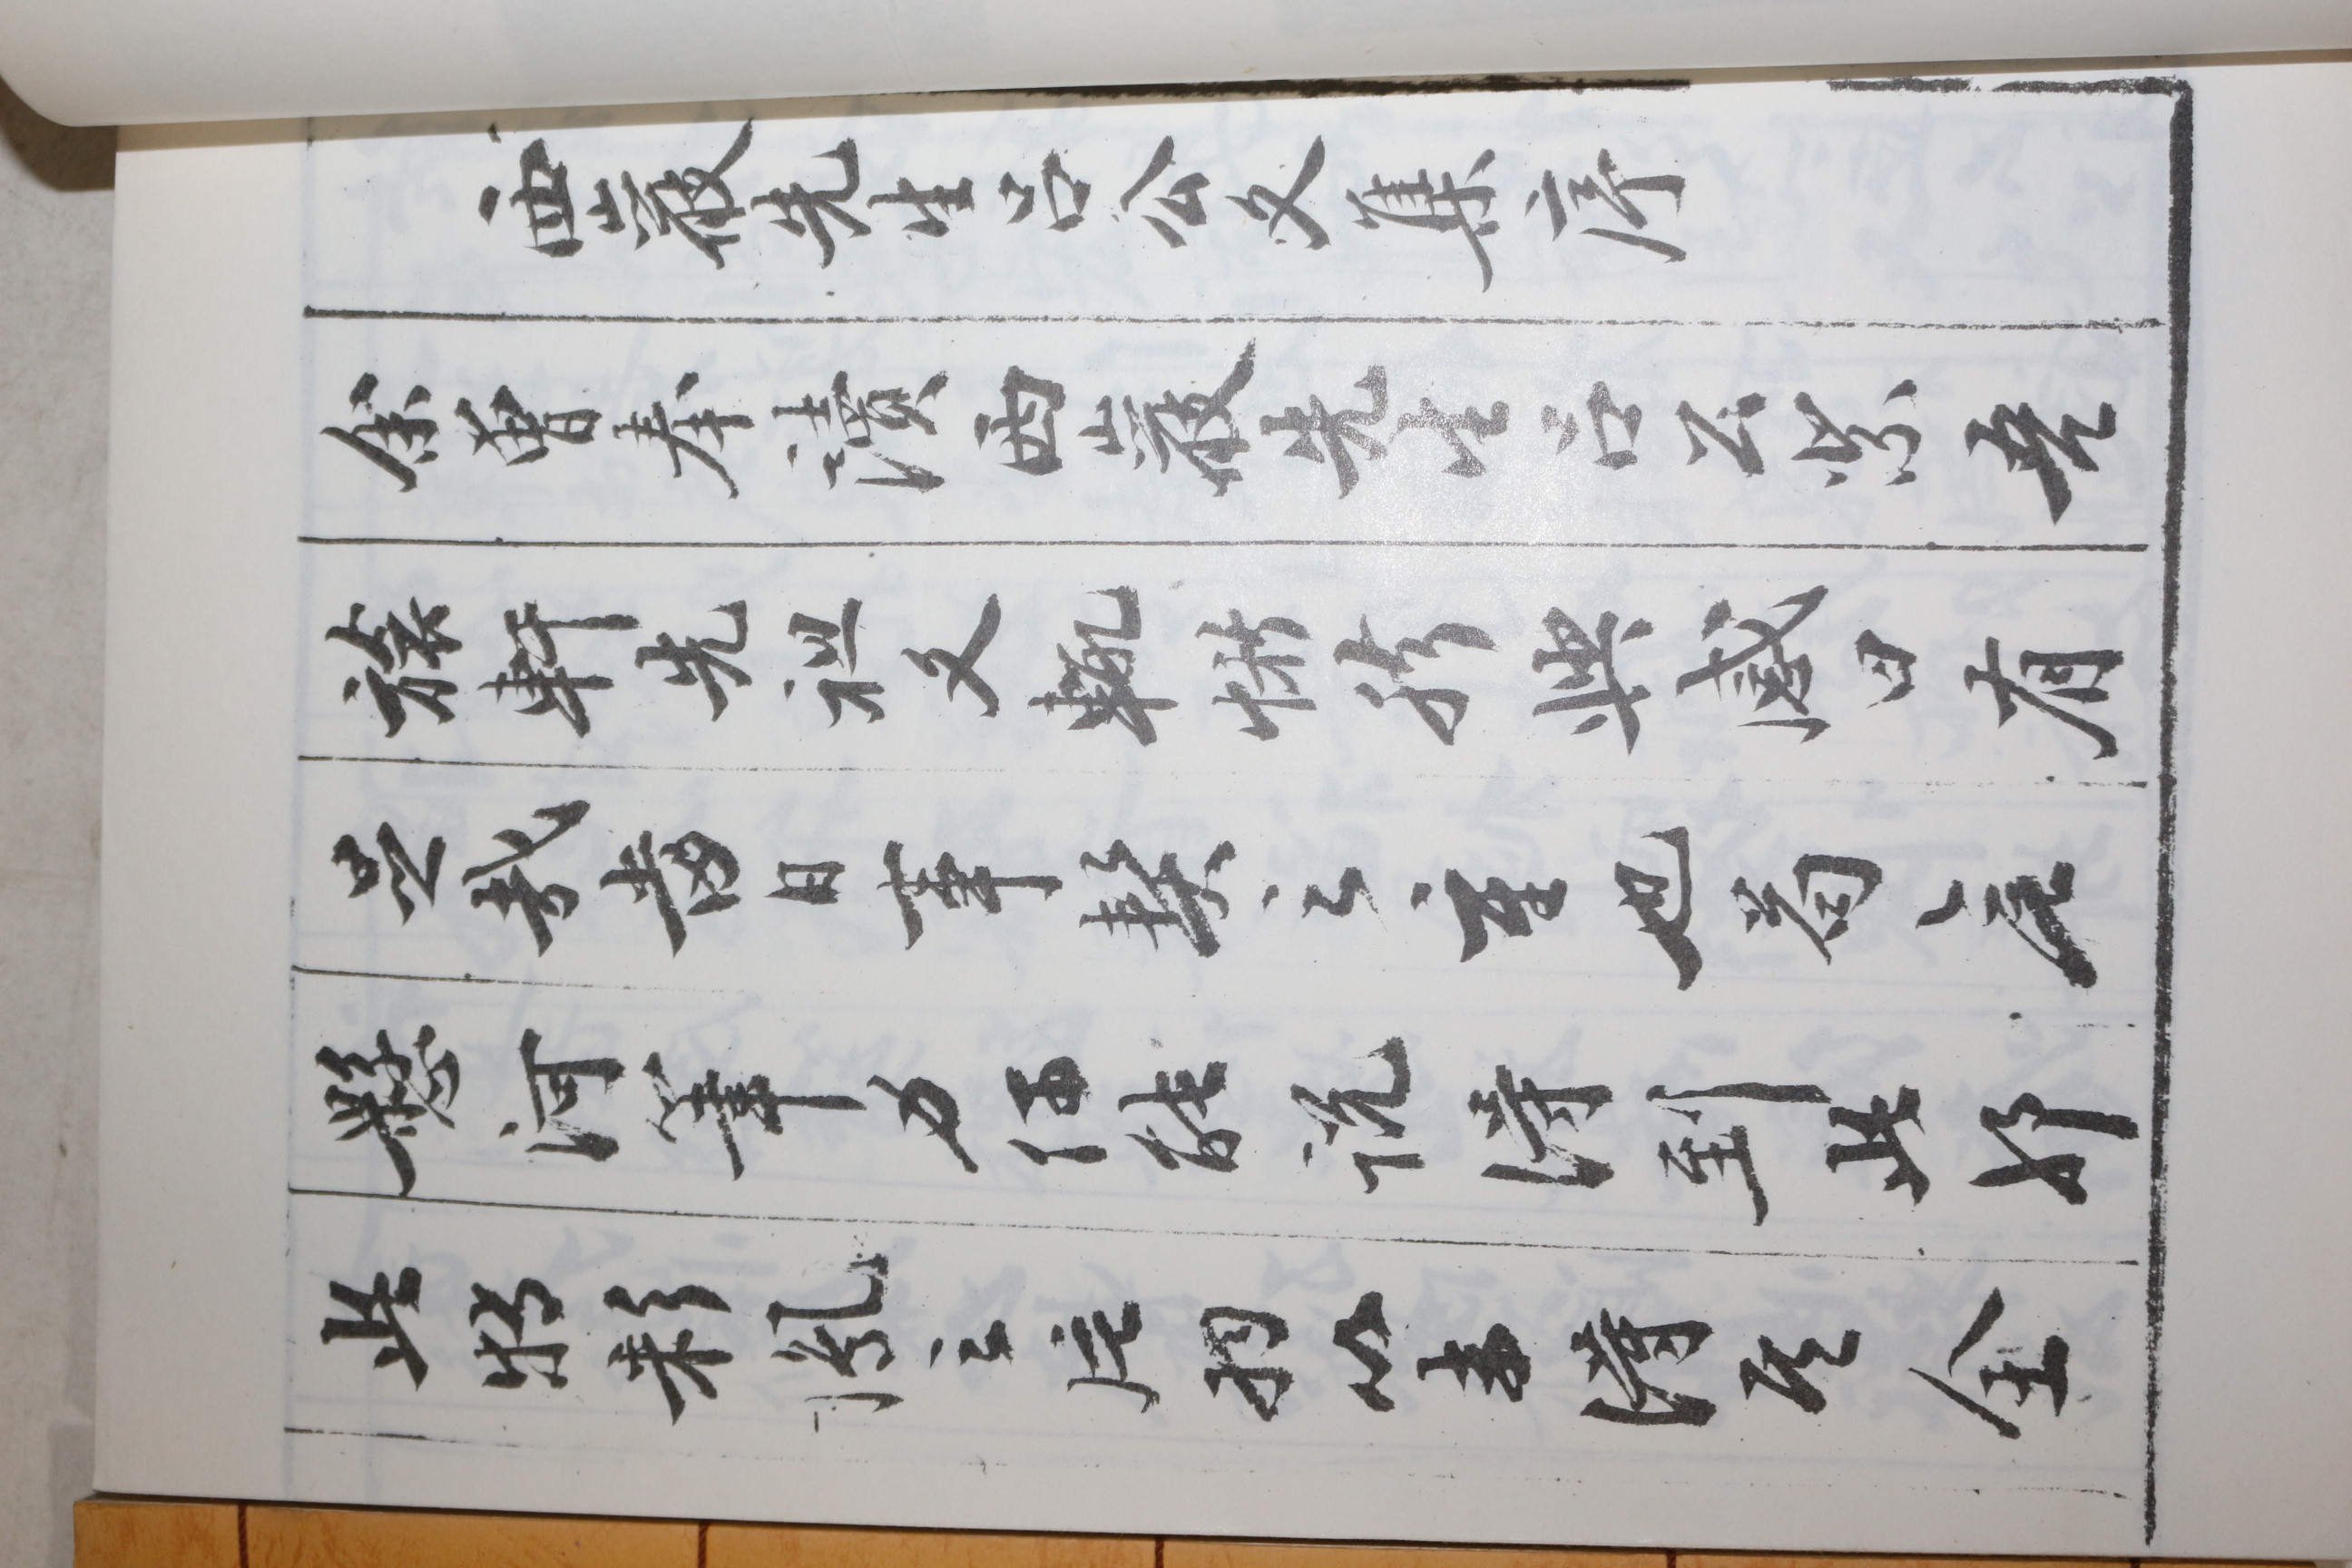 西巖先生呂公文集序
余曾奉讀西巖先生呂公祭吾
旅軒先祖文輒慨然興感曰有
是哉當日事契之重也苟無
懸河筆力何能說得到此邪
此特彩鳳之片羽以未得其全